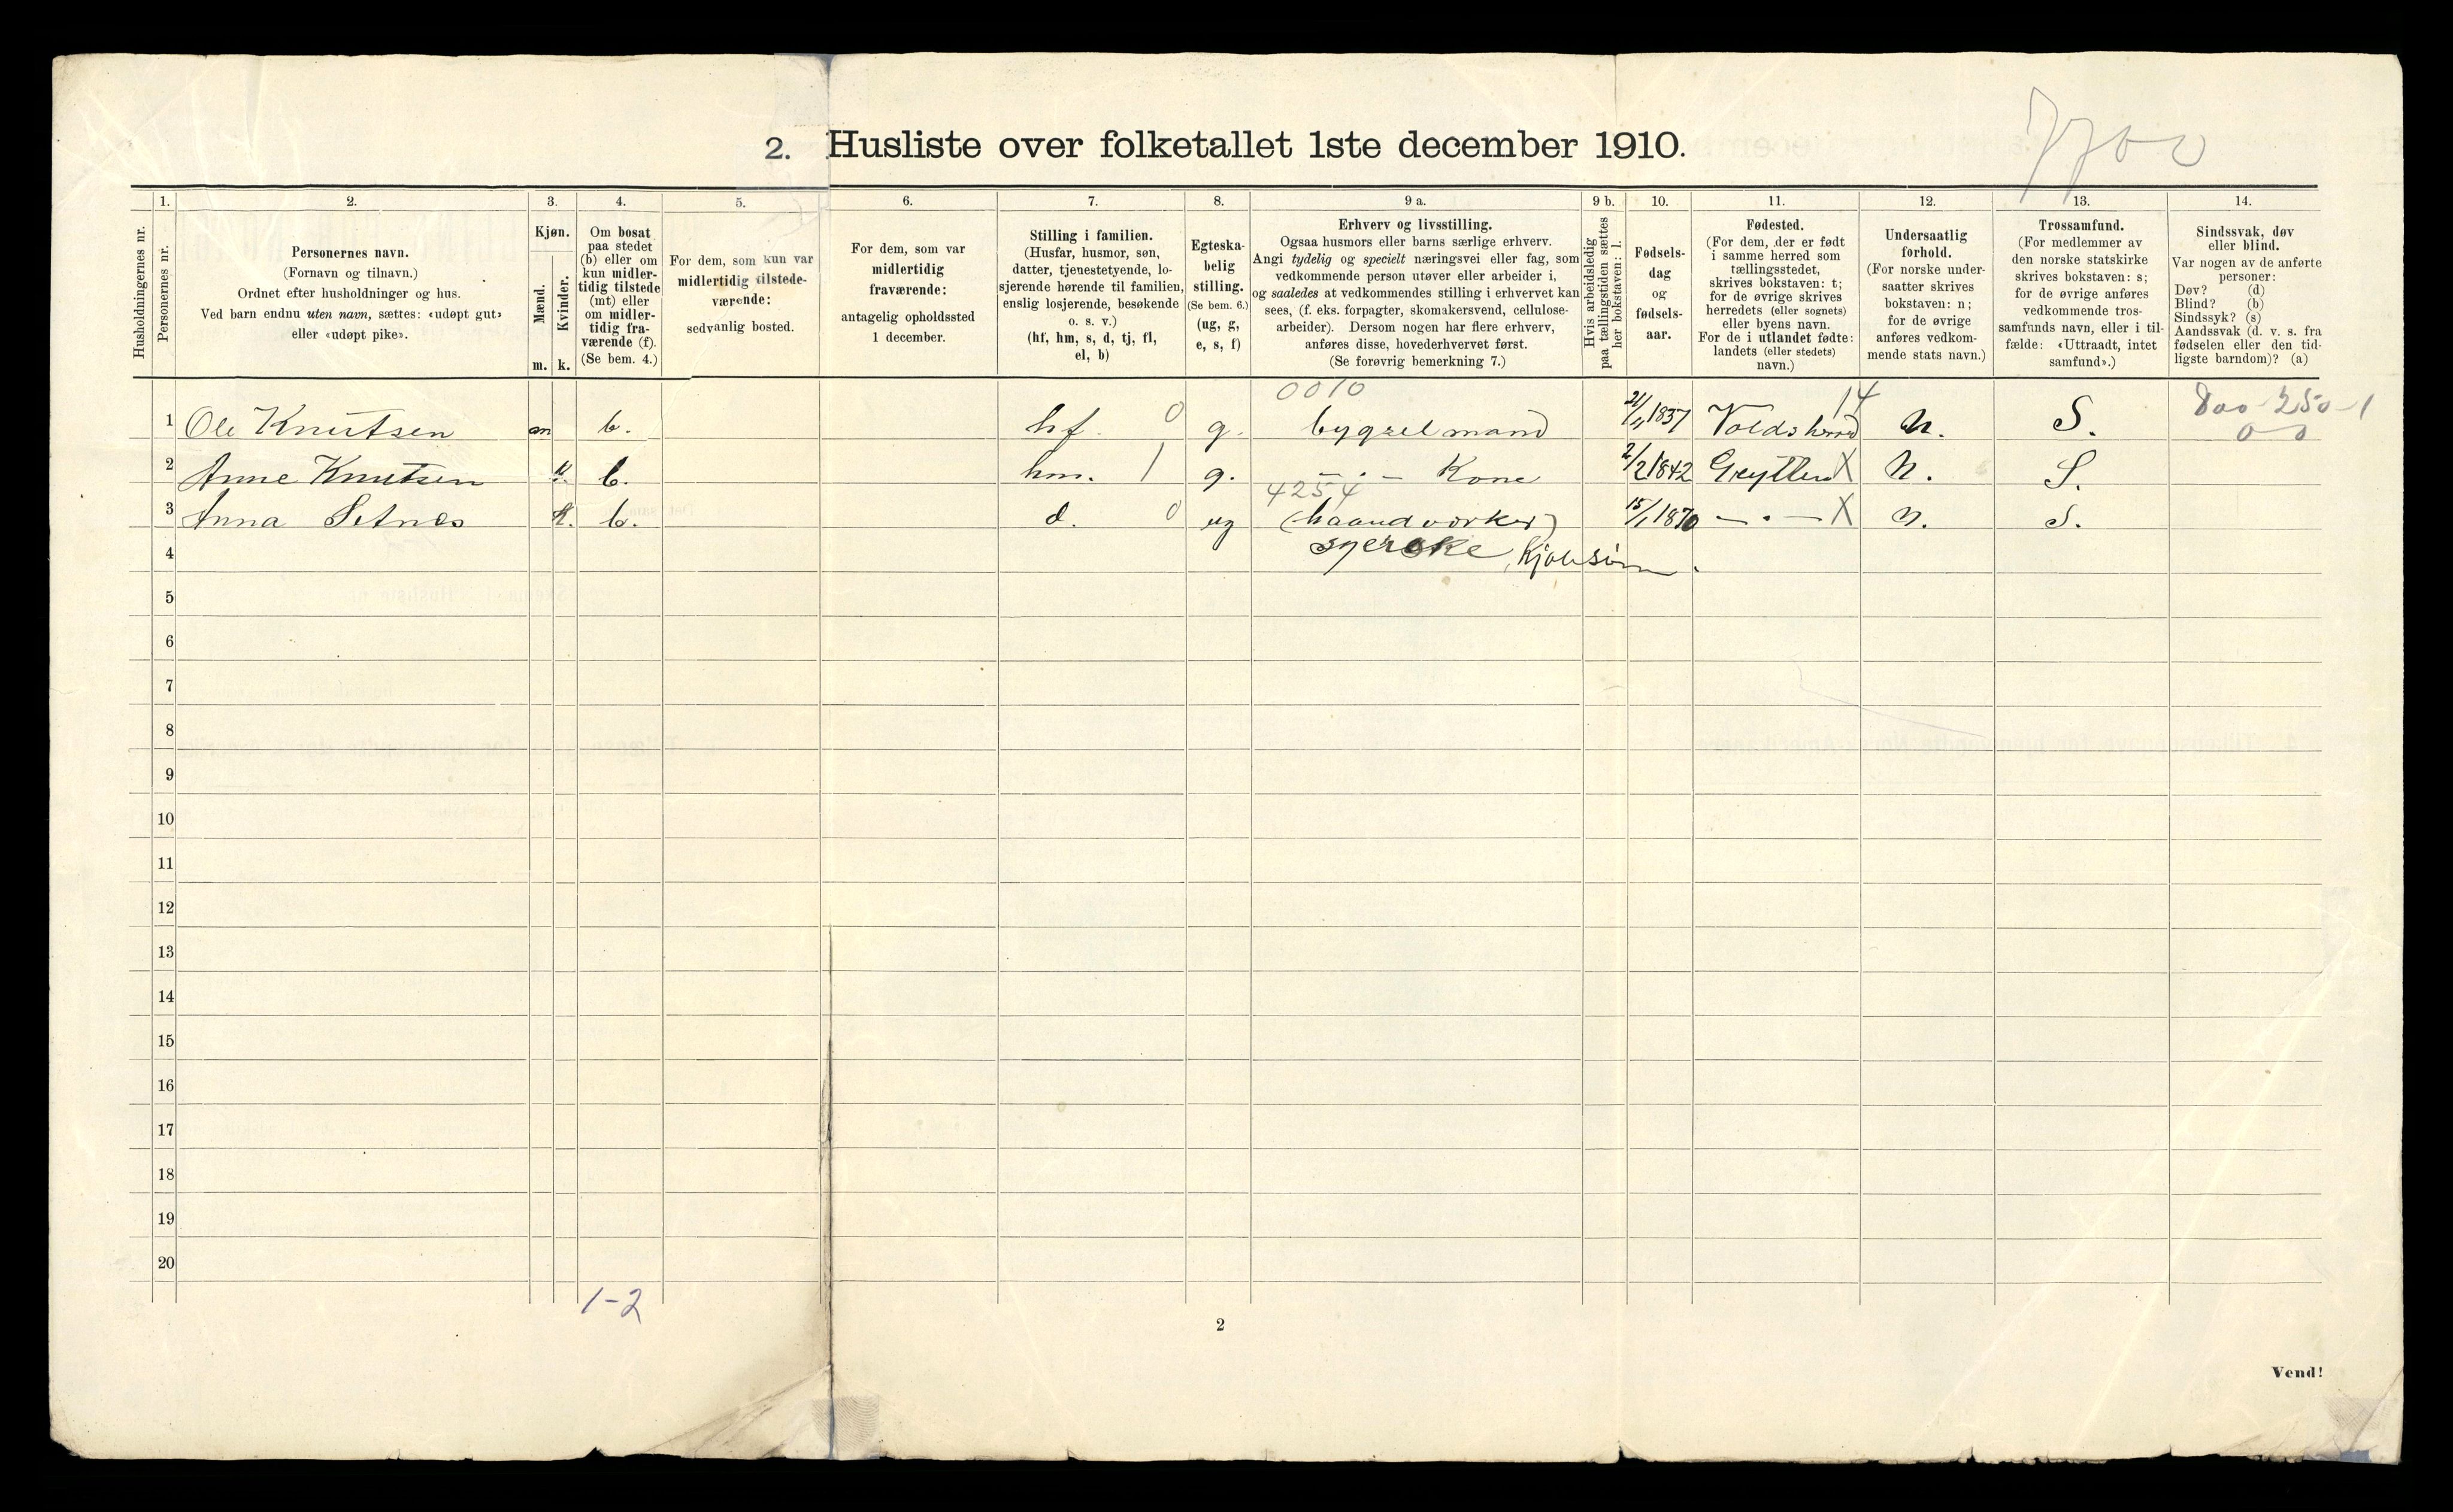 7700
2. Husliste over folketallet 1ste december 1910.
1. 2. 3. 4. 5. 6. 7. 8. 9 a. 9 b. 10. 11. 12. 13. 14.
Husholdningernes nr.
Personernes nr.
Personernes navn.
(Fornavn og tilnavn.)
Ordnet efter husholdninger og hus.
Ved barn endnu uten navn, sættes: «udøpt gut»
eller «udøpt pike».
Kjøn.
Mænd.
Kvinder.
m. k.
Om bosat
paa stedet
(b) eller om
kun midler-
tidig tilstede
(mt) eller
om midler-
tidig fra-
værende (f).
(Se bem. 4.)
For dem, som kun var
midlertidig tilstede-
værende:
sedvanlig bosted.
For dem, som var
midlertidig
fraværende:
antagelig opholdssted
1 december.
Stilling i familien.
(Husfar, husmor, søn,
datter, tjenestetyende, lo-
sjerende hørende til familien,
enslig losjerende, besøkende
o. s. v.)
(hf, hm, s, d, tj, fl,
el, b)
Egteska-
belig
stilling.
(Se bem. 6.)
(ug, g,
e, s, f)
Erhverv og livsstilling.
Ogsaa husmors eller barns særlige erhverv.
Angi tydelig og specielt næringsvei eller fag, som
vedkommende person utøver eller arbeider i,
og saaledes at vedkommendes stilling i erhvervet kan
sees, (f. eks. forpagter, skomakersvend, cellulose-
arbeider). Dersom nogen har flere erhverv,
anføres disse, hovederhvervet først.
(Se forøvrig bemerkning 7.)
Hvis arbeidsledig
paa tællingstiden sættes
her bokstaven: l.
Fødsels-
dag
og
fødsels-
aar.
Fødested.
(For dem, der er født
i samme herred som
tællingsstedet,
skrives bokstaven: t;
for de øvrige skrives
herredets (eller sognets)
eller byens navn.
For de i utlandet fødte:
landets (eller stedets)
navn.)
Undersaatlig
forhold.
(For norske under-
saatter skrives
bokstaven: n;
for de øvrige
anføres vedkom-
mende stats navn.)
Trossamfund.
(For medlemmer av
den norske statskirke
skrives bokstaven: s;
for de øvrige anføres
vedkommende tros-
samfunds navn, eller i til-
fælde: «Uttraadt, intet
samfund».)
Sindssvak, døv
eller blind.
Var nogen av de anførte
personer:
Døv? (d)
Blind? (b)
Sindssyk? (s)
Aandssvak (d. v. s. fra
fødselen eller den tid-
ligste barndom)? (a)
0010 14 800-250-1
1 Ole Knutsen m b. hf. 0 g. bygselmand 1837 Voldsherred N. S. 0-0
2 Anne Knutsen k. b. hm. 1 g. — . — Kone 2/2 1842 Grytten X N. S.
4254
3 Anna Setnes k. b. d. 0 ug (haandværker) 15/1 1870 — . — X N. S.
4 syerske, Kjolesöm.
5
6
7
8
9
10
11
12
13
14
15
16
17
18
19
20
1-2
2
Vend!